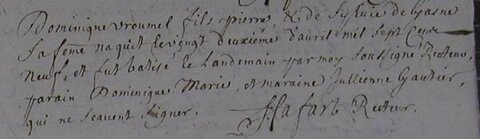 Dominique vroumel fils pierre, & de Sylvie de Gasne
sa feme naquit le vingt deuxiéme d'avril mil sept Cens
neuf, et fut batisé le Landemain par moy soussigné Recteur,
parain Dominique Marie, et maraine Jullienne Gautier,
qui ne scavent signer. Recteur.